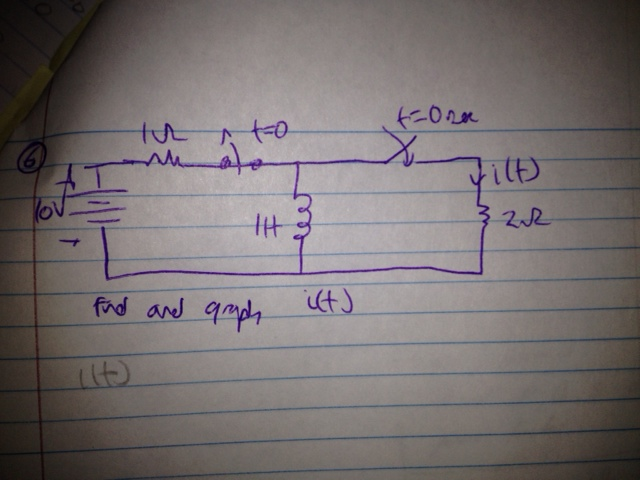 6
1Ω
t=0
t=0 sec
10V
1H
i(t)
2Ω
find and graph i(t)
i(t)